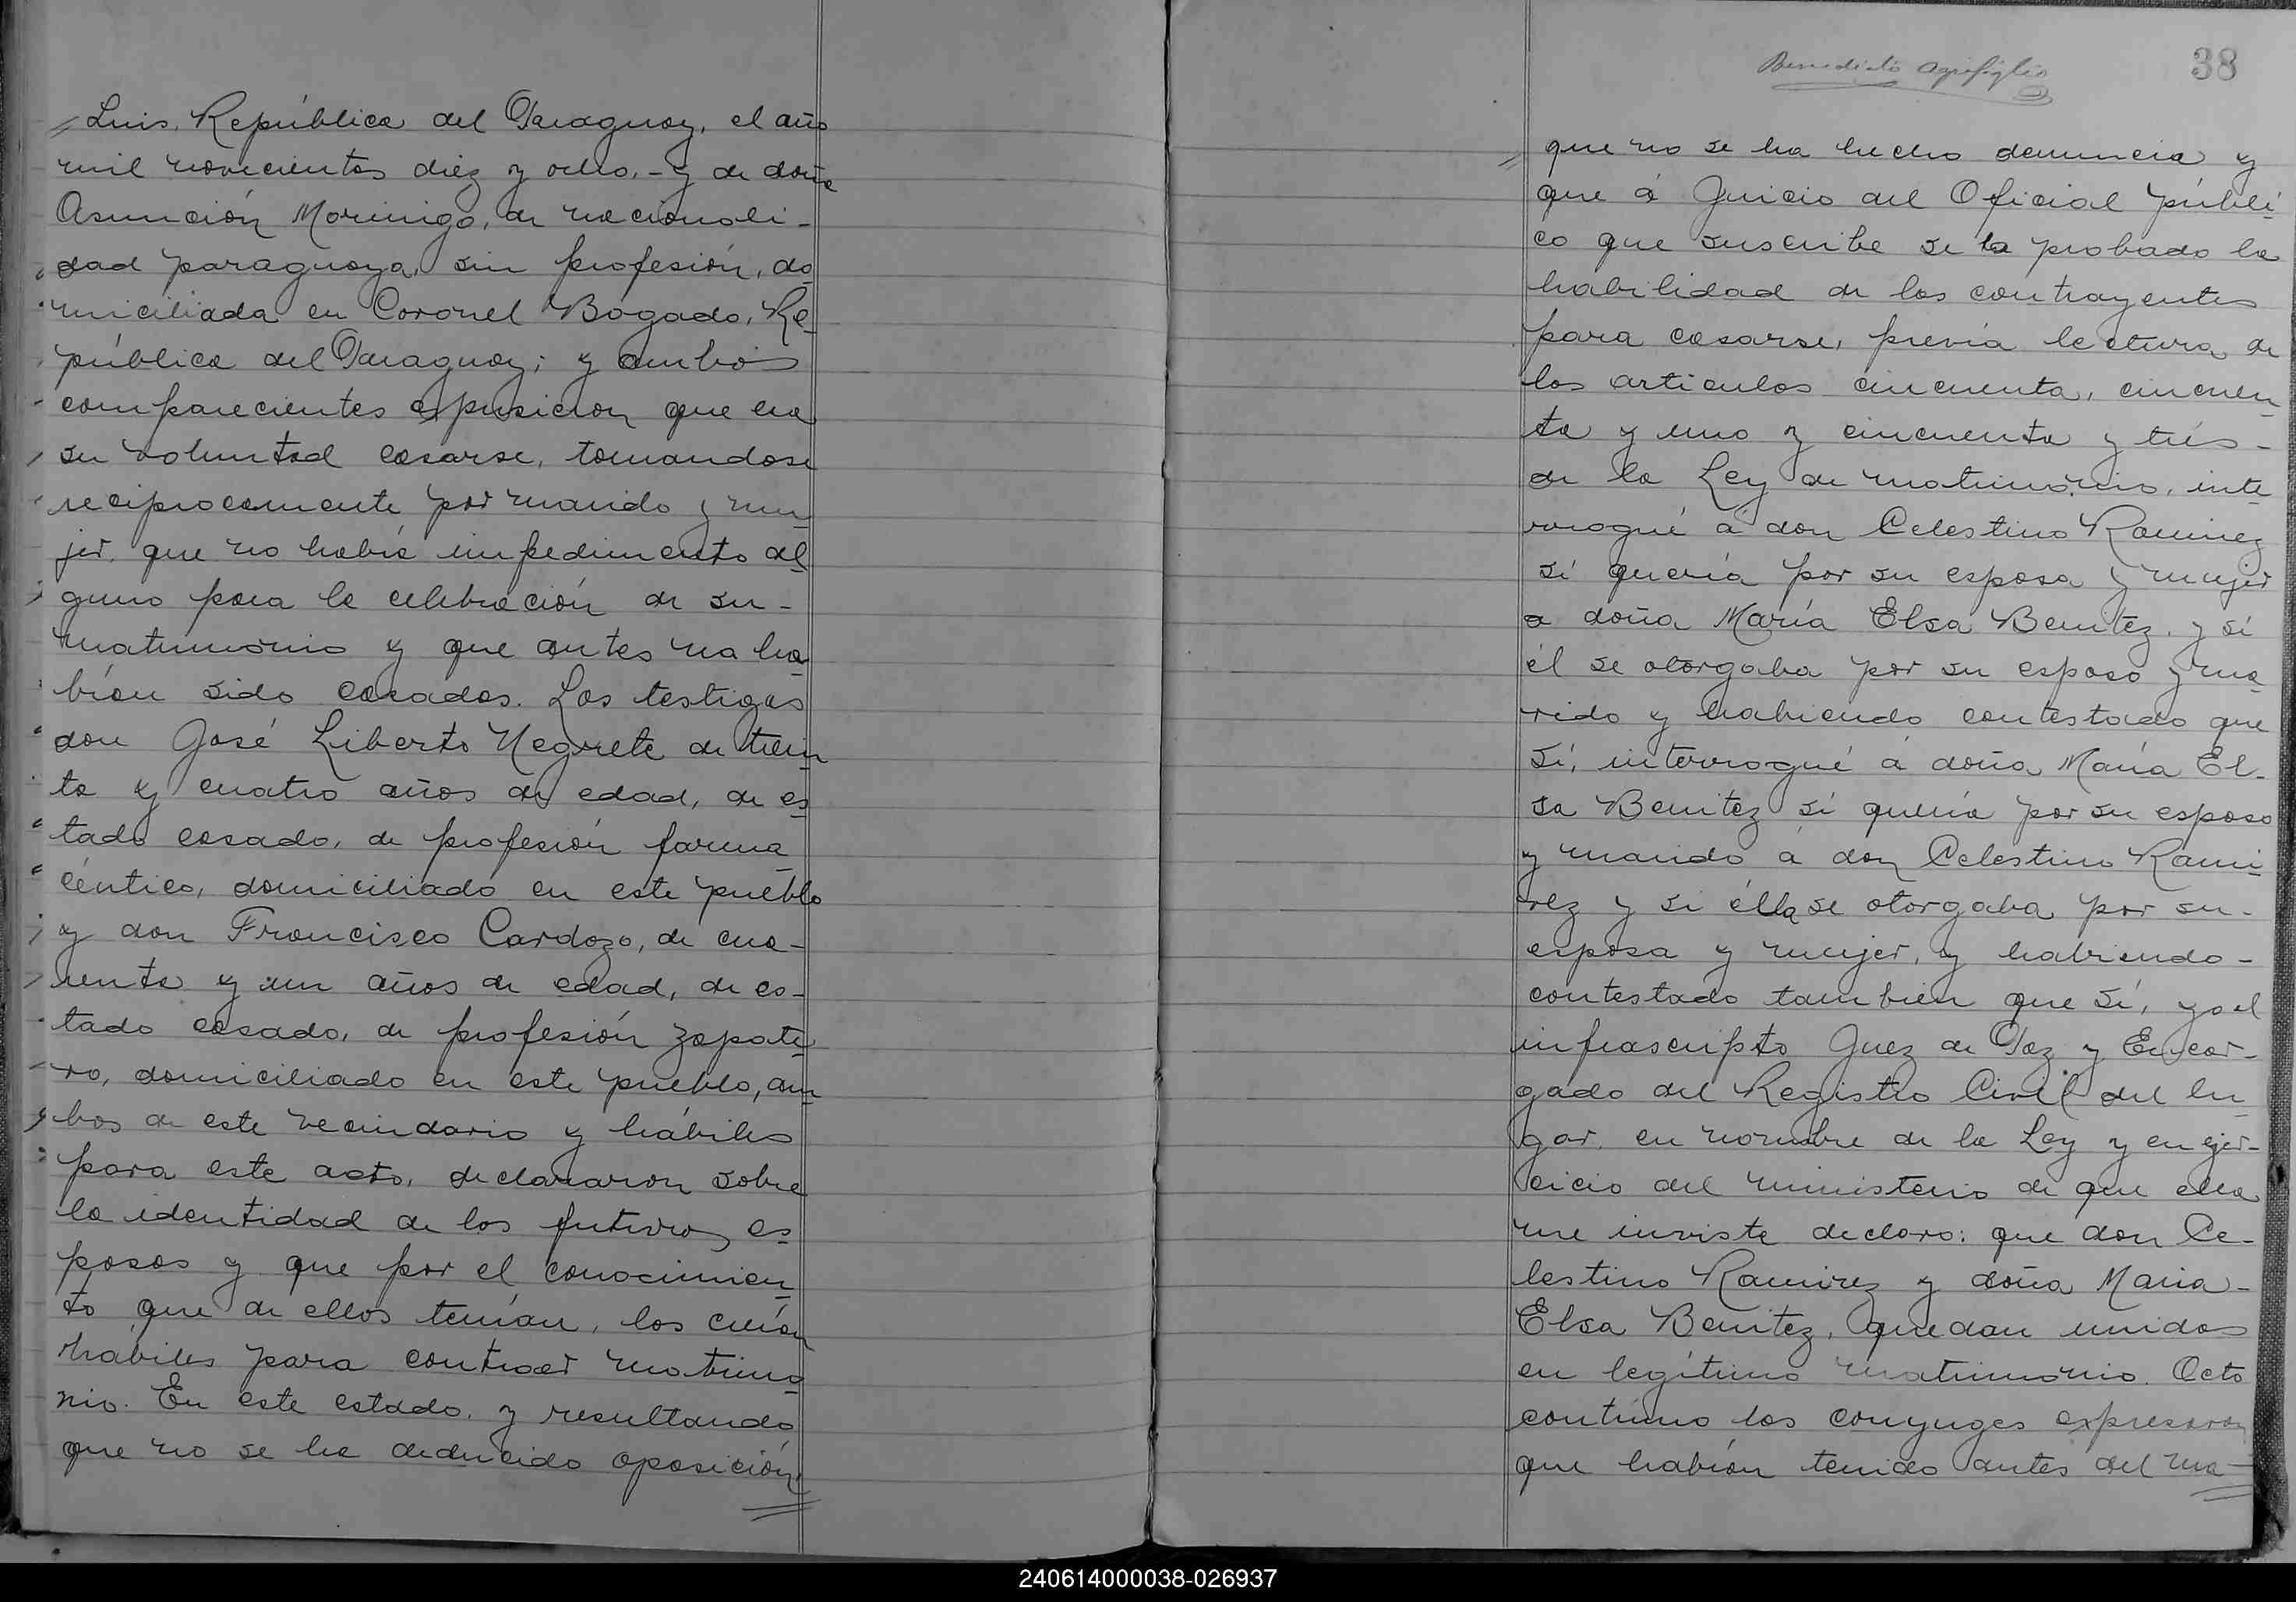 Luis, República del Paraguay, el año
mil novecientos diez y ocho.- y de doña
Asunción Morinigo, de nacionali-
dad paraguaya, sin profesión, do
miciliada en Coronel Bogado, Re-
pública del Paraguay; y ambos
comparecientes expusieron que era
su voluntad casarse, tomandose
reciprocamente por marido y mu-
jer, que no había impedimento al-
guno para la celebración de su-
matrimonio y que antes no ha-
bían sido casados. Los testigos
don José Liberto Negrete de trein-
ta y cuatro años de edad, de es-
tado casado, de profesión farma-
céutico, domiciliado en este pueblo
y don Francisco Cardozo, de cua-
renta y un años de edad, de es-
tado casado, de profesión zapate-
ro, domiciliado en este pueblo, am-
bos de este vecindario y hábiles
para este acto, declararon sobre
la identidad de los futuros es-
posos y que por el conocimien-
to que de ellos tenían, los creían
hábiles para contraer matrimo-
nio. En este estado, y resultando
que no se ha deducido oposición,
38
que no se ha hecho denuncia y
que á Juicio del Oficial públi-
co que suscribe se ha probado la
habilidad de los contrayentes
para casarse, previa lectura de
los articulos cincuenta, cincuen-
ta y uno y cincuenta y tres-
de la Ley de matrimonio, inte
rrogué á don Celestino Ramirez
sí quería por su esposa y mujer
a doña María Elsa Benitez y sí
él se otorgaba por su esposo y ma-
rido y habiendo contestado que
sí, interrogué á doña María El-
sa Benitez sí quería por su esposo
y marido á don Celestino Rami-
rez y si élla se otorgaba por su-
esposa y mujer, y habiendo-
contestado tambien que sí, yo el
infrascripto Juez de Paz y Encar-
gado del Registro Civil del lu-
gar, en nombre de la Ley y en ejer-
cicio del ministerio de que ella
me inviste declaro: que don Ce-
lestino Ramirez y doña Maria-
Elsa Benitez, quedan unidos
en legítimo matrimonio. Acto
contínuo los conyuges expresaron
que habían tenido antes del ma-
240614000038-026937